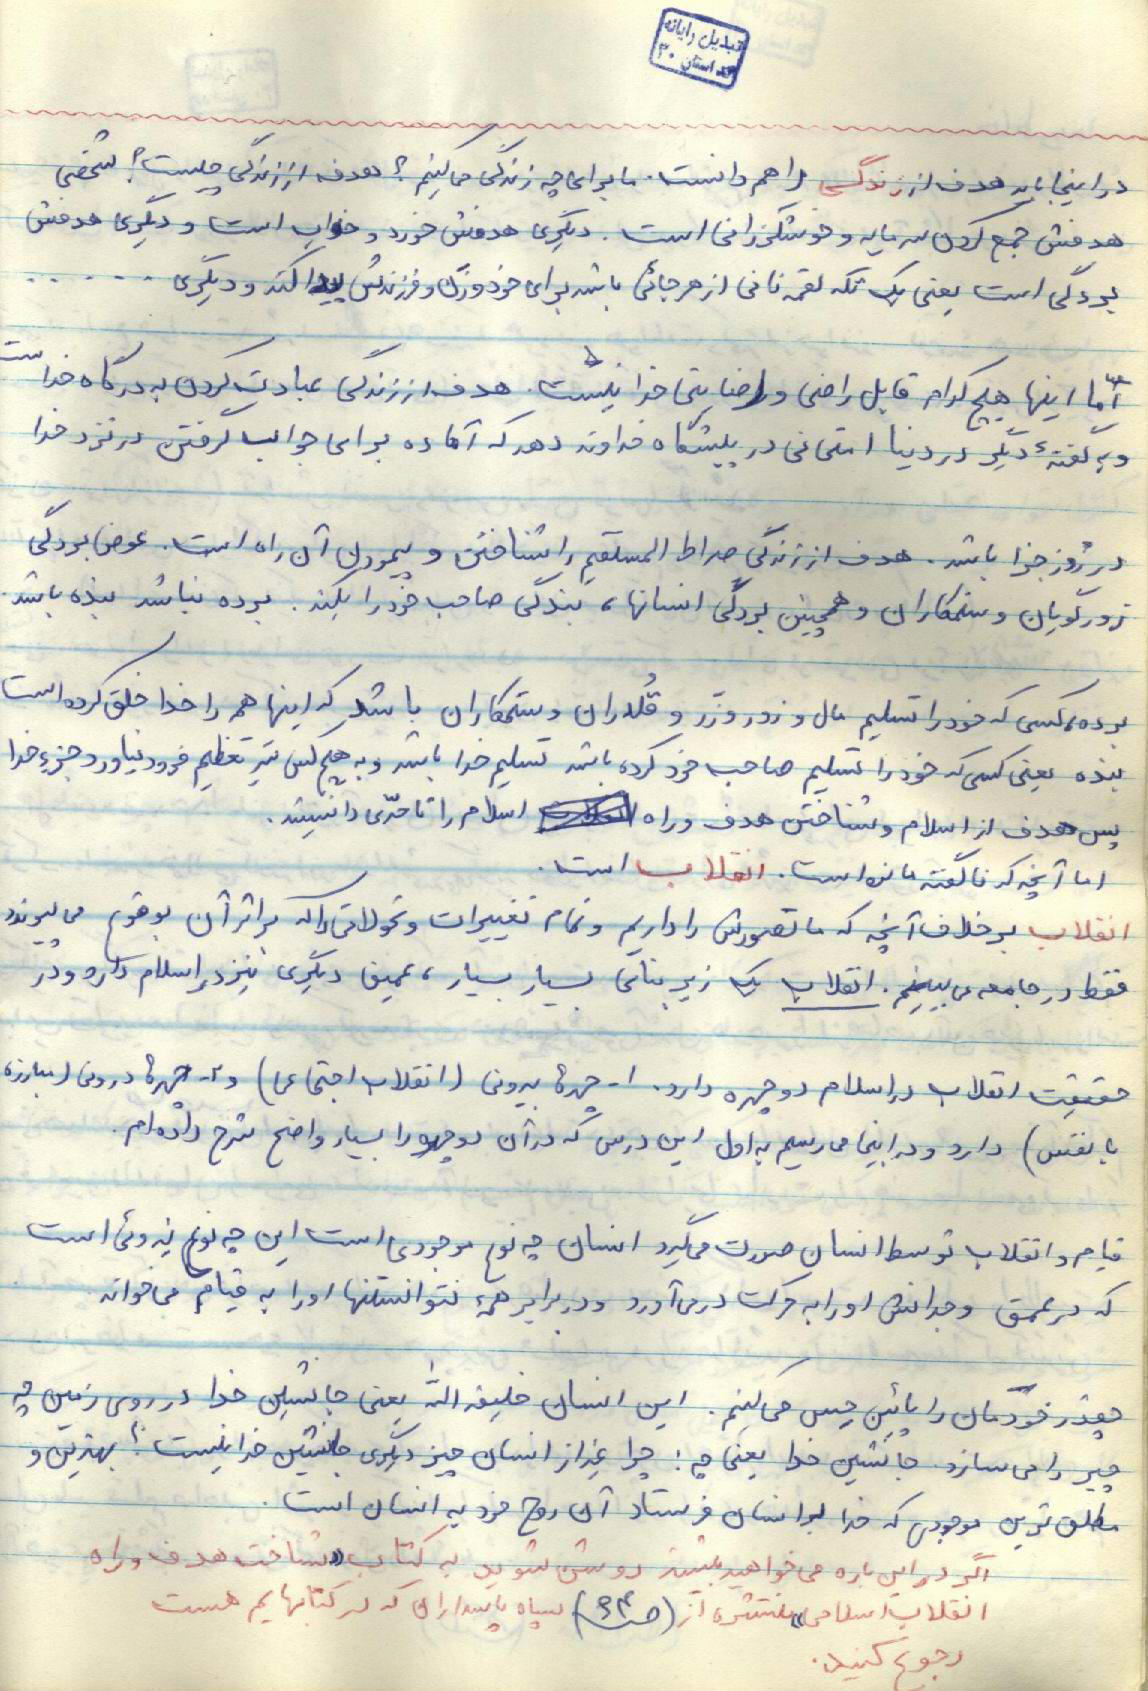 تبدیل رایانه
استان ۳۰
در اینجا باید هدف از زندگی را هم دانست. ما برای چه زندگی می‌کنیم؟ هدف از زندگی چیست؟ شخصی
هدفش جمع کردن سرمایه و خوشگذرانی است. دیگری هدفش خورد و خواب است و دیگری هدفش
بردگی است یعنی یک تکه لقمه نانی از هر جائی باشد برای خود و زن و فرزندش پیدا کند و دیگری ......
امّا اینها هیچ کدام قابل راضی و رضایتی خدا نیست. هدف از زندگی عبادت کردن به درگاه خداست
و به گفتهٔ دیگر در دنیا امتحانی در پیشگاه خداوند دهد که آماده برای جواب گرفتن در نزد خدا
در روز جزا باشد. هدف از زندگی صراط المستقیم را شناختن و پیمودن آن راه است. عوض بردگی
زورگویان و ستمکاران و همچنین بردگی انسانها، بندگی صاحب خود را بکند. برده نباشد بنده باشد.
برده، کسی که خود را تسلیم مال و زور و زر و قُلدران و ستمکاران باشد که اینها هم را خدا خلق کرده است
بنده یعنی کسی که خود را تسلیم صاحب خود کرده باشد تسلیم خدا باشد و به هیچ کس سَرِ تعظیم فرود نیاورد جزءِ خدا
پس هدف از اسلام و شناختن هدف و راه اسلام را تا حدّی دانستید.
اما آنچه که ناگفته مانده است. انقلاب است.
انقلاب بر خلاف آنچه که ما تصورش را داریم و تمام تغییرات و تحولاتی را که بر اثر آن بوقوع می‌پیوندد
فقط در جامعه می‌بینیم. انقلاب یک زیر بنائی بسیار بسیار، عمیق دیگری نیز در اسلام دارد و در
حقیقت انقلاب در اسلام دو چهره دارد. ۱- چهرهٔ بیرونی (انقلاب اجتماعی) و ۲- چهرهٔ درونی (مبارزه
با نفس) دارد و در اینجا می‌رسیم به اول این درس که در آن دو چهره را بسیار واضح شرح داده‌ام.
قیام و انقلاب توسط انسان صورت می‌گیرد انسان چه نوع موجودی است این چه نوع نیروئی است
که در عمق وجدانش او را به حرکت در می‌آورد و در برابر همهٔ نتوانستنها او را به قیام می‌خواند
چقدر خودمان را پائین حس می‌کنیم. این انسان خلیفه اللّه یعنی جانشین خدا در روی زمین چه
چیز را می سازد. جانشین خدا یعنی چه؛ چرا غیر از انسان چیز دیگری جانشین خدا نیست؟ بهترین و
مطلق ترین موجودی که خدا بر انسان فرستاد آن روح خود به انسان است.
اگر در این باره می‌خواهید بیشتر روشن شوید به کتاب «شناخت هدف و راه
انقلاب اسلامی» منتشره از (ص ۶۴) سپاه پاسداران که در کتابهایم هست
رجوع کنید.